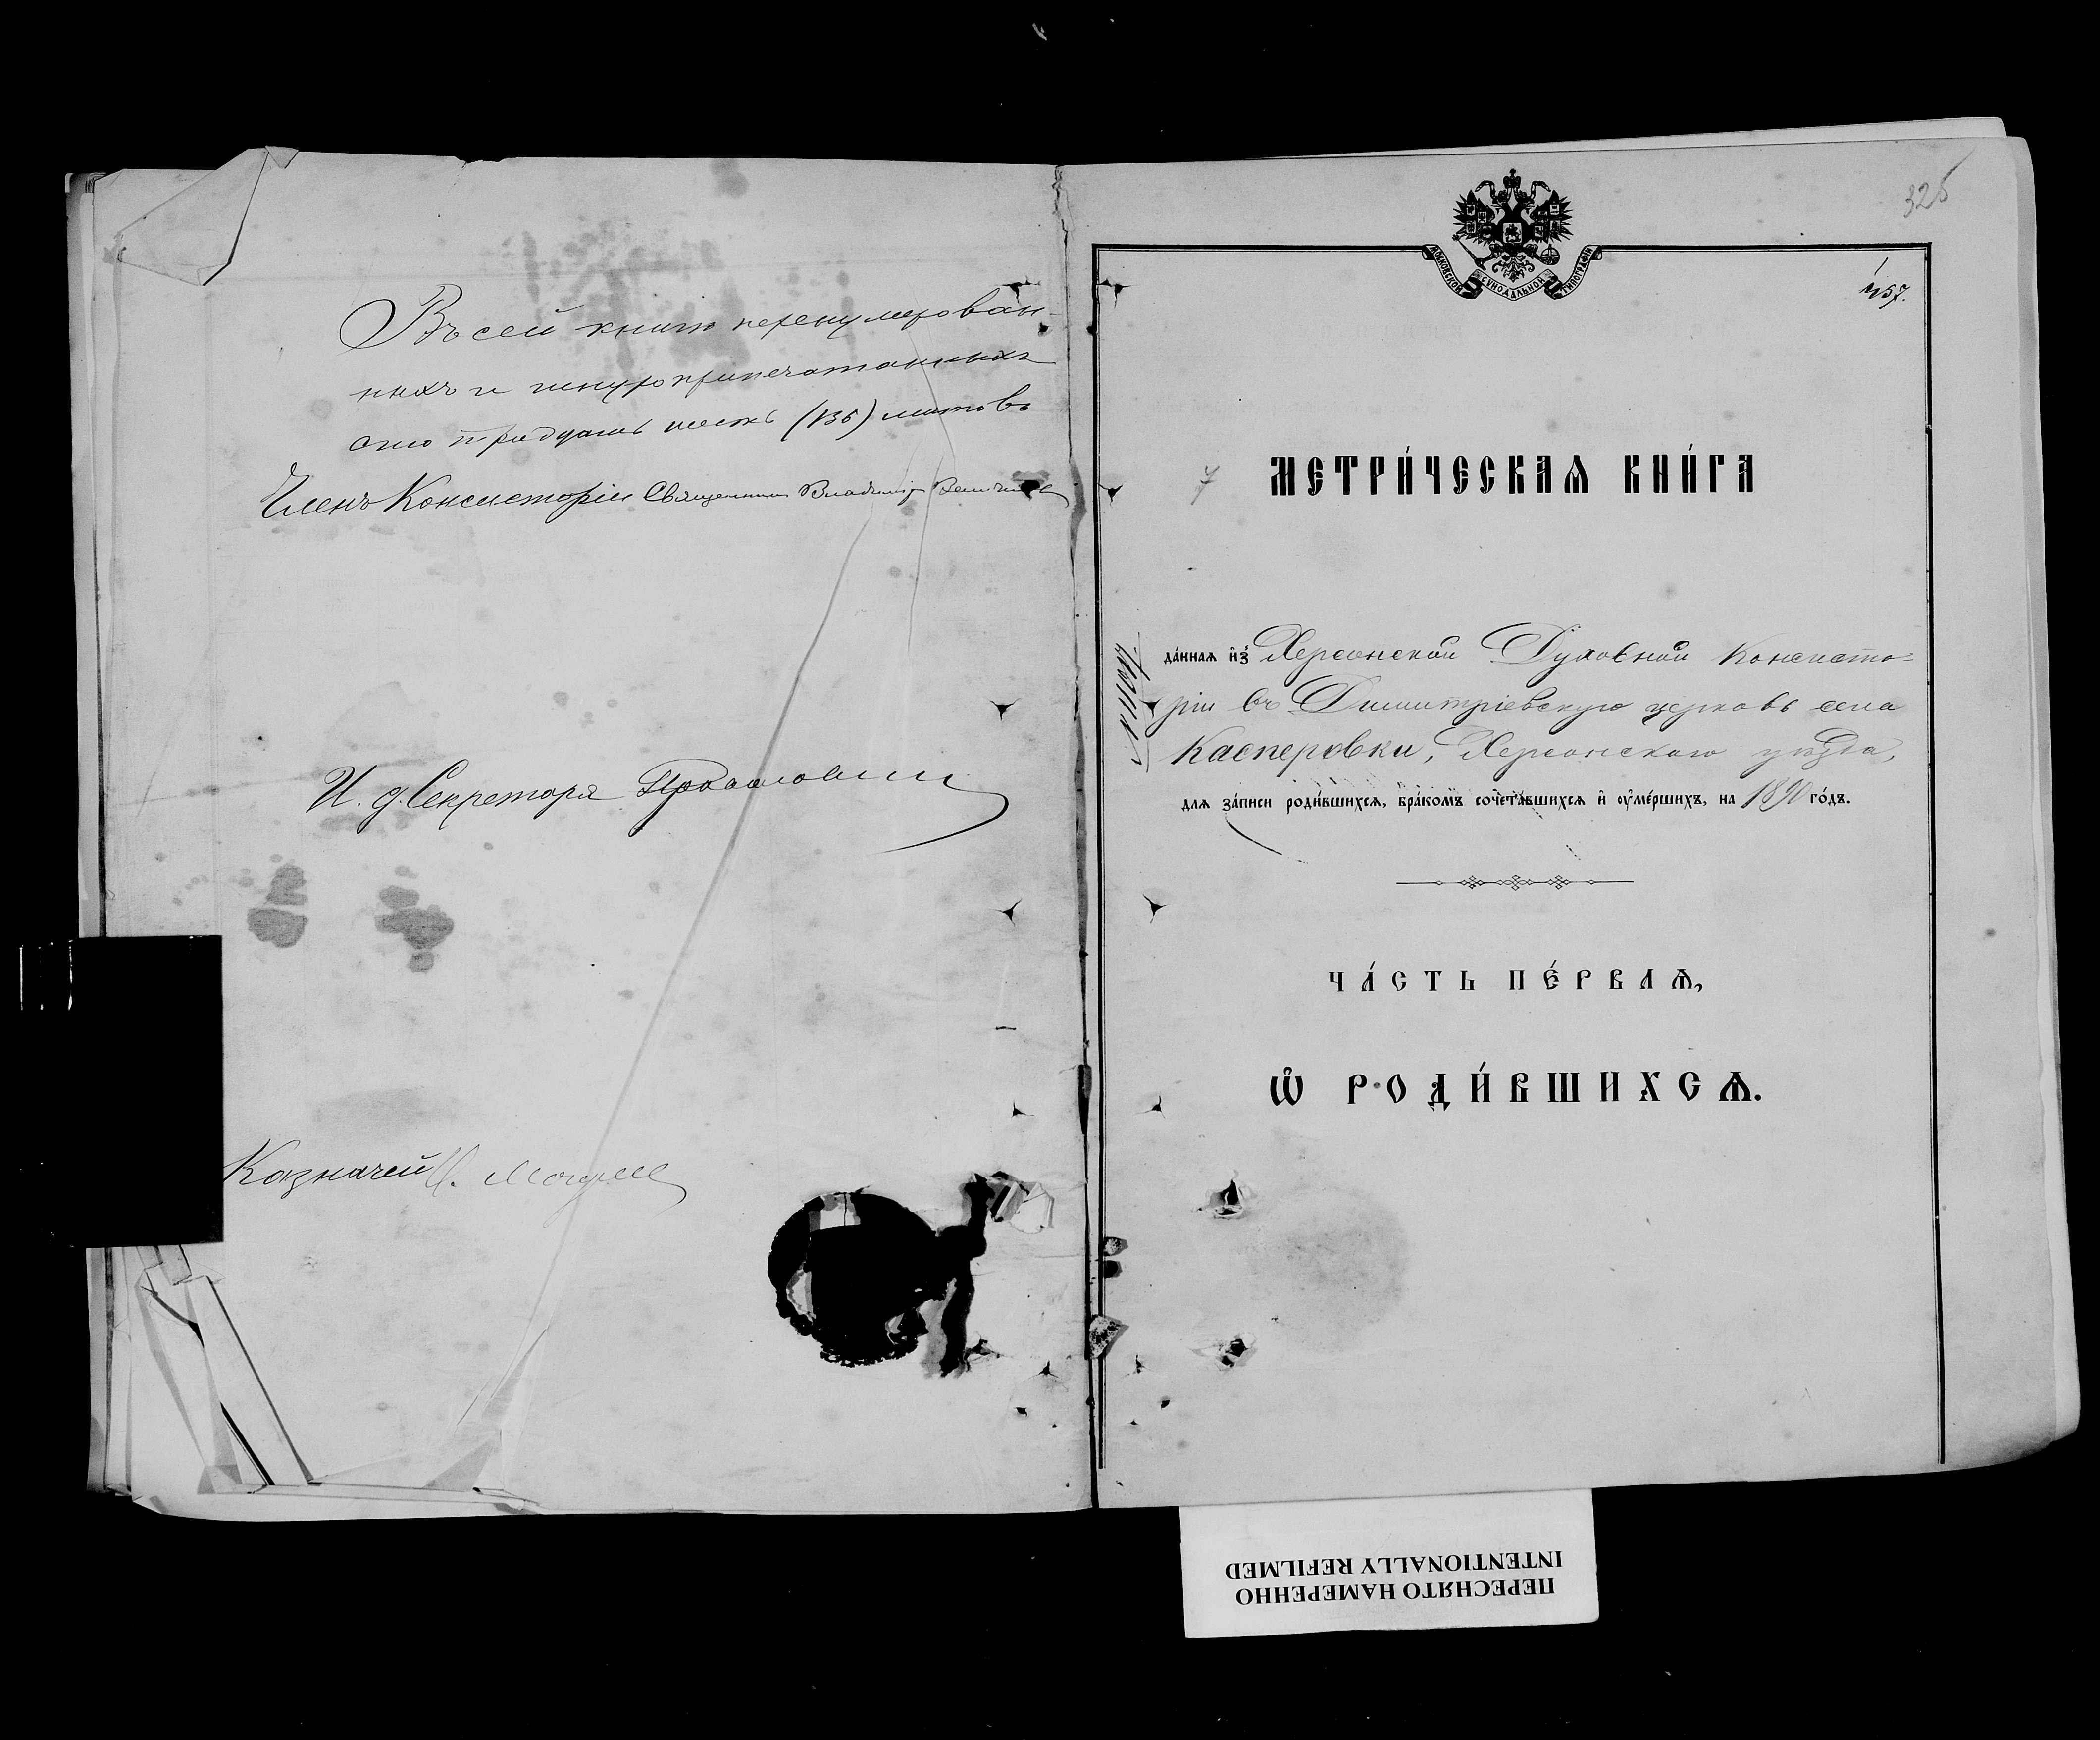 Въ сей книгѣ перенумерован-
ныхъ и шнуроприпечатанныхъ
сто тридцать шесть (136) листовъ
Членъ Консисторіи Священникъ Владиміръ
И. д. Секретаря
Казначей
325
МОСКОВСКОЙ СѴНОДАЛЬНОЙ ТИПОГРАФІИ
МЕТРИ́ЧЕСКАѦ КНИ́ГА
да́ннаѧ и҆зъ Херсонской Духовной Консисто-
ріи въ Димитріевскую церковь села
Касперовки, Херсонскаго уѣзда,
длѧ за́писи роди́вшихсѧ, бра́комъ сочета́вшихсѧ и҆ ѹ҆ме́ршихъ, на 1890 го́дъ.
ЧА́СТЬ ПЕ́РВАѦ,
Ѡ҆ РОДИ́ВШИХСѦ.
ПЕРЕСНЯТО НАМЕРЕННО
INTENTIONALLY REFILMED